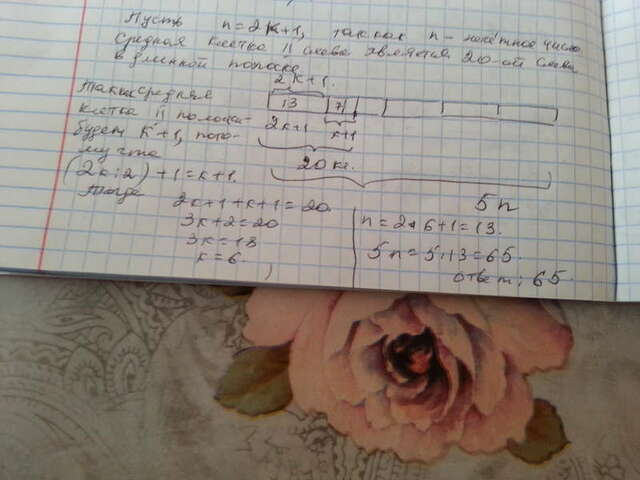 Пусть n=2k+1, так как n - нечётное число
Средняя клетка II слева является 20-ой слева
в длинной полоске.
2k+1.
Так как средняя
клетка II полоски
будет k+1, пото-
му что
(2k:2)+1=k+1.
13 7
2k+1 k+1
20 кл.
5n
Тогда
2k+1+k+1=20.
3k+2=20
3k=18
k=6
n=2·6+1=13.
5n=5·13=65.
ответ: 65